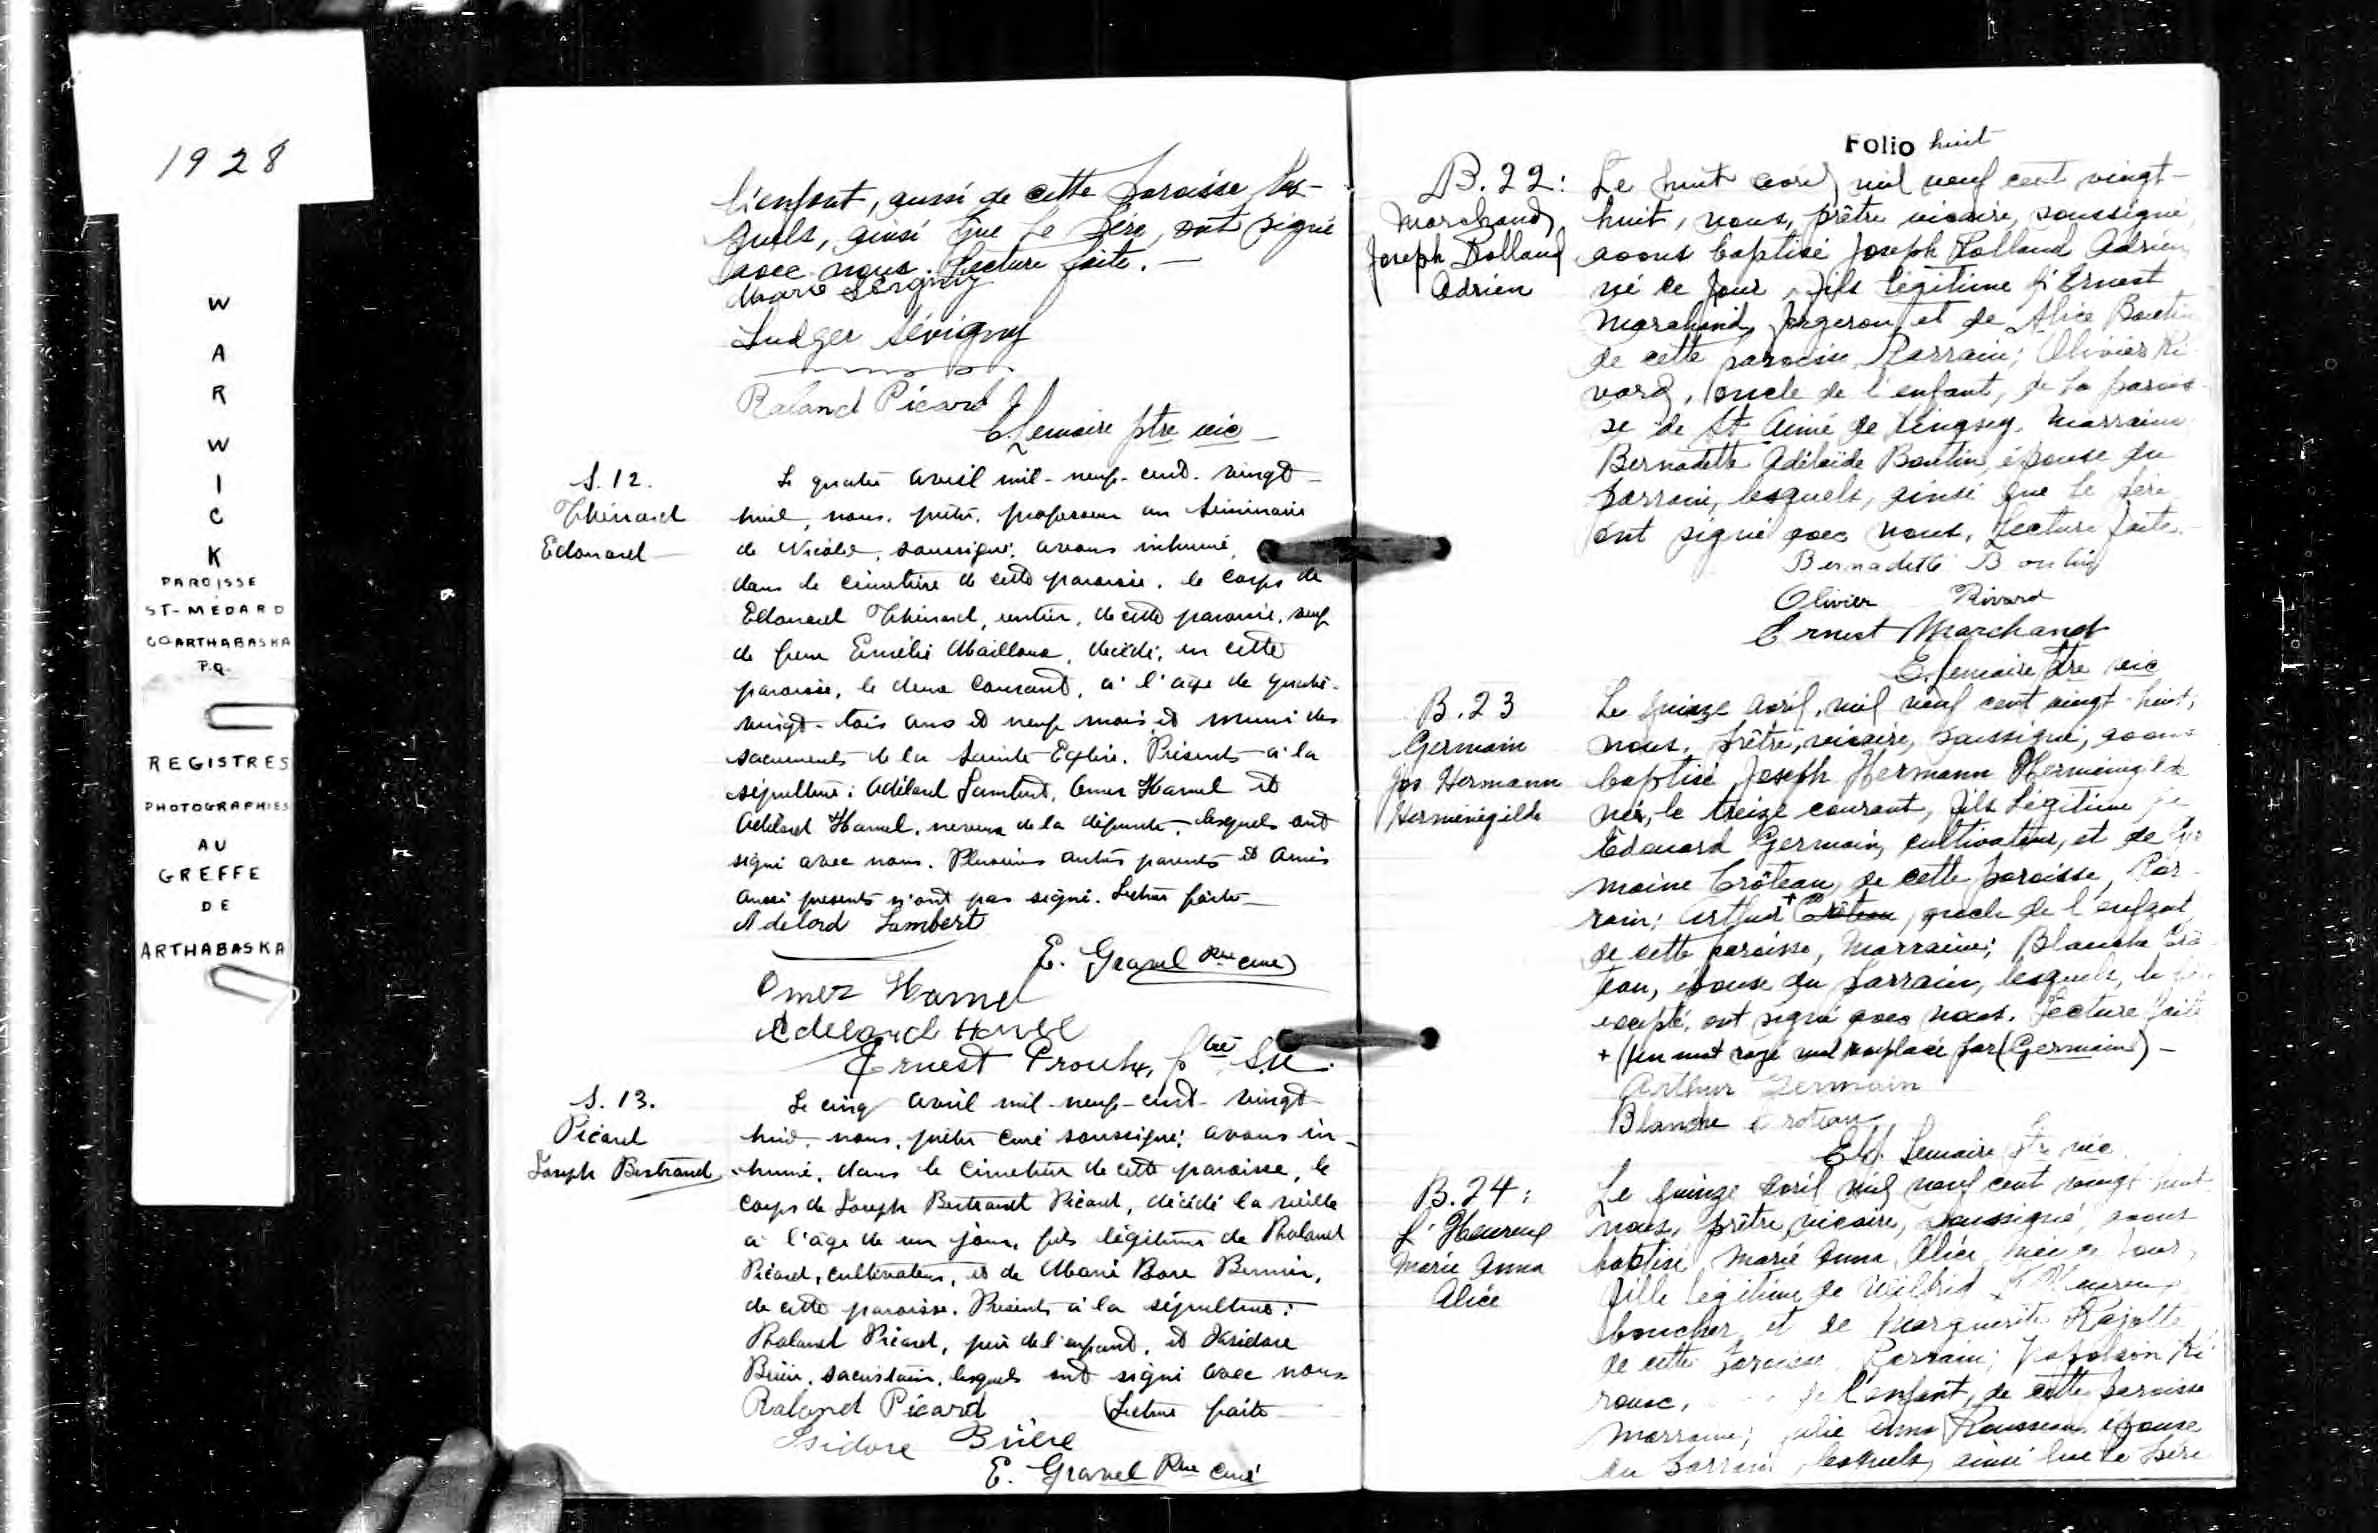 1928
W
A
R
W
I
C
K
PAROISSE
ST-MÉDARD
CO ARTHABASKA
P.Q.
REGISTRES
PHOTOGRAPHIES
AU
GREFFE
DE
ARTHABASKA
l'enfant, aussi de cette paroisse les-
quels, ainsi que le père, ont signé
avec nous. Lecture faite. —
Marie Sévigny
Ludger Sévigny
Roland Picard
E. Lemaire ptre vic
S. 12.
Thénard
Edouard
Le quatre avril mil-neuf-cent-vingt-
huit, nous, prêtre, professeur au Séminaire
de Nicolet, soussigné, avons inhumé,
dans le cimetière de cette paroisse, le corps de
Edouard Thénard, rentier, de cette paroisse, veuf
de feue Emélie Mailloux, décédé, en cette
paroisse, le deux courant, à l'âge de quatre-
vingt-trois ans et neuf mois et muni des
sacrements de la Sainte-Eglise. Présents à la
sépulture: Adélard Lambert, Omer Hamel et
Adélard Hamel, neveux de la défunte, lesquels ont
signé avec nous. Plusieurs autres parents et amis
aussi présents n'ont pas signé. Lecture faite
Adelord Lambert
E. Gravel Ptre curé
Omer Hamel
Adelard Hamel
Ernest Proulx, ptre S.N.
S. 13.
Picard
Joseph Bertrand
Le cinq avril mil-neuf-cent-vingt
huit, nous, prêtre curé soussigné, avons in-
humé, dans le cimetière de cette paroisse, le
corps de Joseph Bertrand Picard, décédé la veille
à l'âge de un jour, fils légitime de Roland
Picard, cultivateur, et de Marie Rose Bernier,
de cette paroisse. Présents à la sépulture:
Roland Picard, père de l'enfant, et Isidore
Brière, sacristain, lesquels ont signé avec nous
Roland Picard Lecture faite
Isidore Brière
E. Gravel Ptre curé
Folio huit
B. 22:
Marchand,
Joseph Rolland
Adrien
Le huit avril mil neuf cent vingt-
huit, nous, prêtre vicaire, soussigné,
avons baptisé Joseph Rolland Adrien
né ce jour, fils légitime d'Ernest
Marchand, forgeron et de Alice Boutin
de cette paroisse. Parrain; Olivier Ri-
vard, oncle de l'enfant, de la parois-
se de St Aimé de Kingsey. Marraine
Bernadette Adélaïde Boutin, épouse du
parrain, lesquels, ainsi que le père
ont signé avec nous. Lecture faite.
Bernadette Boutin
Olivier Rivard
Ernest Marchand
E. Lemaire ptre vic
B. 23
Germain
Jos Hermann
Herménégilde
Le quinze avril, mil neuf cent vingt-huit,
nous, prêtre, vicaire, soussigné, avons
baptisé Joseph Hermann Herménégilde
né, le treize courant, fils légitime de
Edouard Germain, cultivateur, et de Ger
maine Crôteau, de cette paroisse, Par-
rain; Arthur + Crôteau, oncle de l'enfant
de cette paroisse, Marraine; Blanche Crô-
teau, épouse du parrain, lesquels, le père
excepté, ont signé avec nous. Lecture faite
+ (un mot rayé nul remplacé par (Germain) —
Arthur Germain
Blanche Croteau
E. Lemaire ptre vic
B. 24:
L'Heureux
Marie Anna
Alice
Le quinze avril mil neuf cent vingt-huit
nous, prêtre vicaire, soussigné, avons
baptisé, Marie Anna Alice, née ce jour,
fille légitime de Wilfrid L'Heureux
boucher, et de Marguerite Rajotte
de cette paroisse. Parrain; Napoléon Ki
rouac, de l'enfant, de cette paroisse
Marraine; Julie Anna Rousseau, épouse
du parrain, lesquels, ainsi que le père